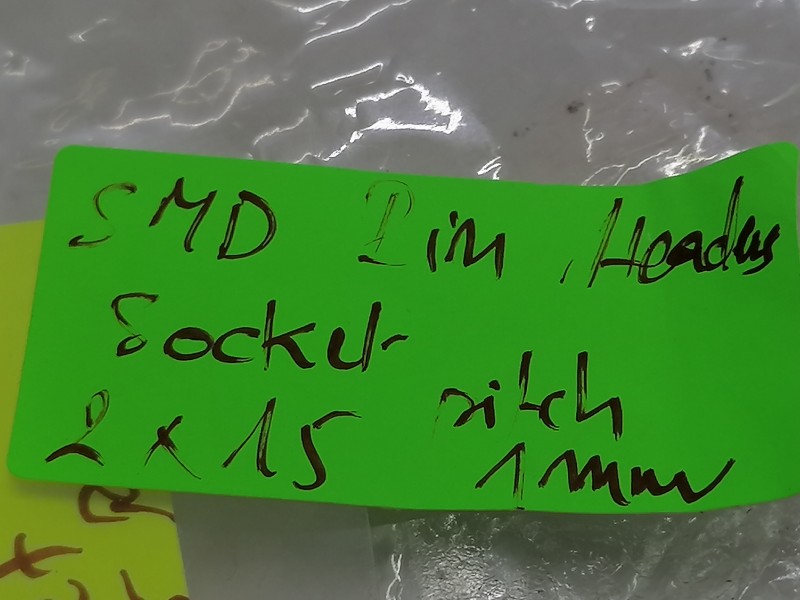 SMD Pin Header
Socket
2 x 15 pitch
1mm